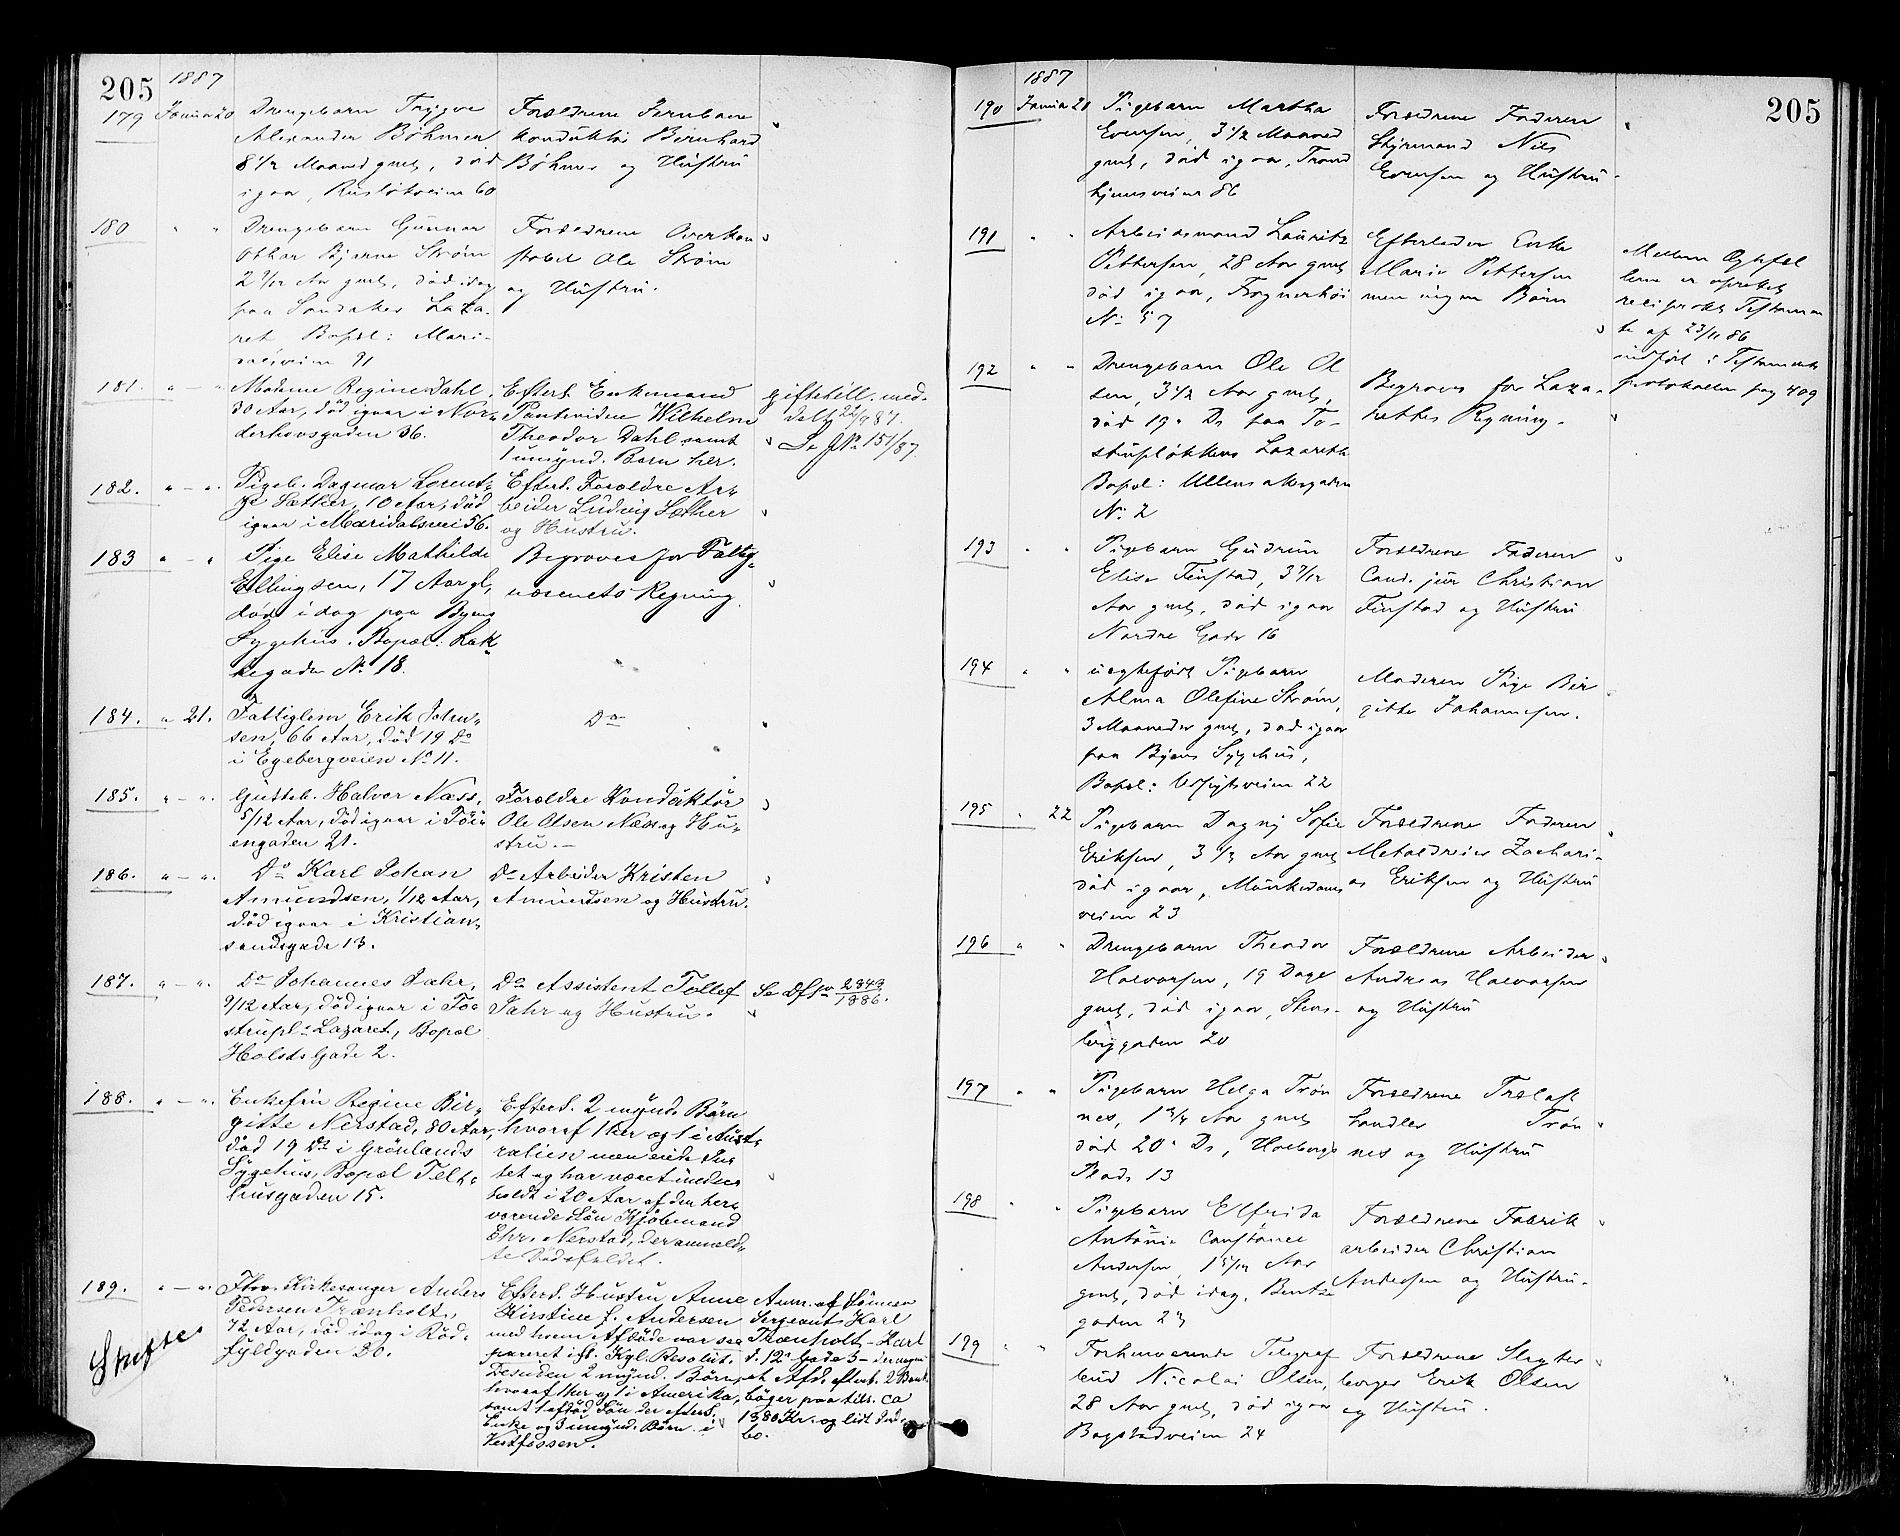 205
1887
179 Januar 20 Drengebarn Trygve
Alexander Böhmer
8 1/2 Maaned gmlt, död
igaar, Rusløkveien 60
Forældrene Jernbane
konduktör Bernhard
Böhmer og Hustru
180 " " Drengebarn Gunnar
Othar Bjarne Ström
2 7/12 Aar gmlt, död idag
paa Sandaker Laza-
ret, Bopæl: Mari-
dalsveien 91
Forældrene Overkon
stabel Ole Ström
og Hustru.
181. " - " Madame Regine Dahl,
30 Aar, död igaar i Nor-
derhovsgaden 36.
Efterl. Enkemand
Theodor Dahl samt
1 umynd. Barn her.
giftetill. med-
delt 22/9 87.
Se 151/87.
182. " - " Pigeb. Dagmar Lorent-
ze Sæther, 10 Aar, död
igaar i Maridalsvei 56.
Efterl. Forældre Ar-
beider Ludvig Sæther
og Hustru.
183 " - " Pige Elise Mathilde
Ellingsen, 17 Aar gl,
död idag paa Byens
Sygehus. Bopæl: Lak-
kegaden No 18.
Begraves for Fattig-
væsenets Regning.
184. " 21. Fattiglem Erik John-
sen, 66 Aar, död 19 Ds
i Egebergveien No 11.
Do
185. " - " Gutteb. Halvor Næss,
5/12 Aar, död igaar i Töi-
engaden 21.
Forældre Konduktör
Ole Olsen Næss og Hu-
stru. -
186. " - " Do Karl Johan
Amundsen, 1/12 Aar,
död igaar i Kristian-
sandsgade 13.
Do Arbeider Kristen
Amundsen og Hustru.
187. " - " Do Johannes Jahr,
9/12 Aar, död igaar i To-
strupl. Lazaret, Bopæl
Holsts Gade 2.
Do Assistent Tollef
Jahr og Hustru.
Se Dfpr 2843/1886.
188. " - " Enkefru Regine Bir-
gitte Nerstad, 80 Aar,
död 19 Ds i Grönlands
Sygehus, Bopæl Telt-
husgaden 15.
Efterl. 2 mynd. Börn
hvoraf 1 her og 1 i Aust-
ralien men eide In-
tet og har været under-
holdt i 20 Aar af den her-
værende Sön Kjöbmand
Chr. Nerstad, der anmeld-
te Dödsfaldet.
189. " - " Fhv. Kirkesanger Anders
Pedersen Trænholt,
72 Aar, död idag i Röd-
fyldgaden 20.
Skifte
Efterl. Hustru Anne
Kirstine f. Andersen
med hvem Afdöde var se-
pareret ifl. Kgl. Resolut.
Desuden 2 mynd. Börn,
hvoraf 1 her og 1 i Amerika,
samt 1 afdöd Sön der efterl.
Enke og 3 umynd. Börn i
Vestfossen.
Anm. af Sönnen
Sergeant Karl
Trænholt - Karl
d. 12s Gade 5 - der angav
at Afd. efterl. 2 Bank-
böger paa tils. ca
1380 Kr. og lidt Ind-
bo.
205
1887
190 Januar 21 Pigebarn Martha
Evensen, 3 1/2 Maaned
gmlt, död igaar, Trond
hjemsveien 86
Forældrene Faderen
Styrmand Nils
Evensen og Hustru.
191 " " Arbeidsmand Lauritz
Pettersen, 28 Aar gml,
död igaar, Frognerhöi
No 57
Efterlader Enke
Marie Pettersen
men ingen Börn
Mellem Ægtefol
kene er oprettet
reciprokt Testamen
te af 23/11 86
indført i Testaments
protokollen pag 409
192 " " Drengebarn Ole Ol
sen, 3 1/2 Aar gmlt,
död 19. Ds paa To-
strupløkkens Lazareth
Bopæl: Ullensakergaden
No 2
Begraves for Laza-
rettets Regning.
193 " " Pigebarn Gudrun
Elise Finstad, 3 7/12
Aar gmlt, död igaar
Nordre Gade 16
Forældrene Faderen
Cand. jur Christian
Finstad og Hustru
194 " " uægtefødt Pigebarn
Alma Olefine Ström,
3 Maaneder gmlt, död igaar
paa Byens Sygehus,
Bopæl: Udsigtsveien 22
Moderen Pige Bir
gitte Johannesen.
195 " 22 Pigebarn Dagny Sofie
Eriksen, 3 1/3 Aar gmlt
död igaar, Munkedams
veien 23
Forældrene Faderen
Metaldreier Zachari-
as Eriksen og Hustru
196 " " Drengebarn Theodor
Halvorsen, 19 Dage
gmlt, död igaar, Stens-
berggaden 20
Forældrene Arbeider
Andreas Halvorsen
og Hustru
197 " " Pigebarn Helga Trön
nes, 1 3/4 Aar gmlt
död 20. Ds, Holbergs
Plads 13
Forældrene Trælast
handler Trön
nes og Hustru
198 " " Pigebarn Elfrida
Antonie Constance
Andersen, 1 5/12 Aar
gmlt, död idag, Bentse
gaden 23
Forældrene Fabrik
arbeider Christian
Andersen og Hustru.
199 " " Forhenværende Telegraf
bud Nicolai Olsen,
28 Aar gml, död igaar
Bogstadveien 24
Forældrene Slagter
borger Erik Olsen
og Hustru.